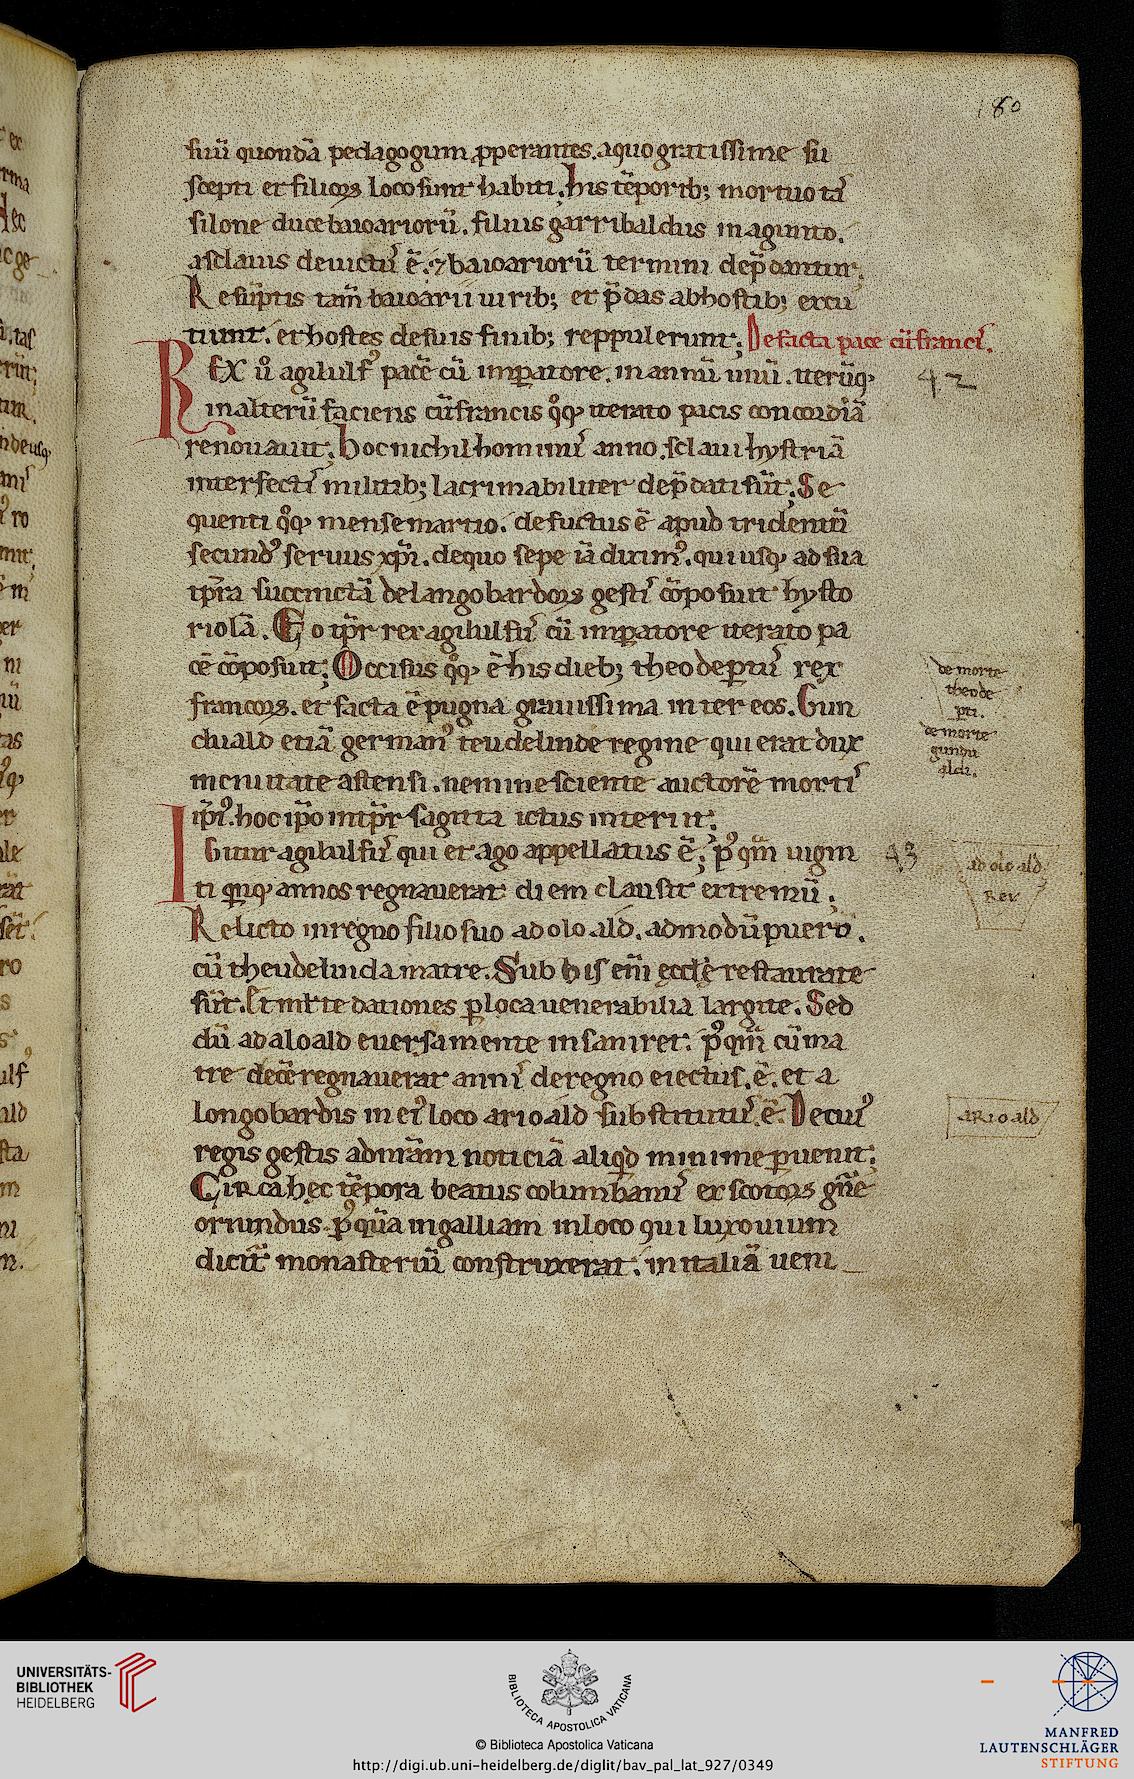 180
suũ quondã pedagogum ꝓperantes. a quo gratissime su
scepti et filioꝝ loco sunt habiti. his tẽporib; mortuo tas
silone duce baioarioꝝ. filius garribaldus in agunto.
a sclauis deuictus ẽ. ⁊ baioariorũ termini dep̃dantur.
Resũptis tam̃ baioarii uirib; et p̃das ab hostib; excu
tiunt. et hostes de suis finib; reppulerunt; De facta pace cũ francis.
REX ũ agilulf' pacẽ cũ imꝑatore. in annũ unũ. iterũq;
in alterũ faciens cũ francis qͦq; iterato pacis concordiã
renouauit. hoc nichilhominus anno. sclaui hystriã
interfectis militib; lacrimabiliter dep̃dati sũt; Se
quenti qͦq; mense martio. defuctus ẽ apud tridentũ
secund' seruus xp̃i. de quo sepe iã diximus. qui usq; ad sua
tp̃ra succinctã de langobardoꝝ gestis cõposuit hysto
riolã. Eo tp̃r rex agilulfus cũ imꝑatore iterato pa
cẽ cõposuit; Occisus qͦq; ẽ his dieb; theodeꝑtus rex
francoꝝ. et facta ẽ pugna grauissima inter eos. Gun
duald etiã german' teudelinde regine qui erat dux
in ciuitate astensi. nemine sciente auctorẽ mortis
ip̃i'. hoc ip̃o intp̃r sagitta ictus interiit;
Igitur agilulfus qui et ago appellatus ẽ; p' qm̃ uigin
ti qinq; annos regnauerat diem clausit extremũ;
Relicto in regno filio suo adoloald. admodũ puero.
cũ theudelinda matre. Sub his em̃ eccle restaurate
sũt. Et mlte dationes ꝑ loca uenerabilia largite. Sed
dũ adaloald euersa mente insaniret. p' qm̃ cũ ma
tre decẽ regnauerat annis de regno eiectus. ẽ. et a
longobardis in ei' loco arioald substitutus. ẽ. De cui'
regis gestis ad nr̃am noticiã aliqͥd minime ꝑuenit;
Circa hec tẽpora beatus columbanus ex scotoꝝ gñe
oriundus. p' qũa in galliam in loco qui luxouium
dicit᷑ monasteriũ construxerat. in italiã ueni_
42
de morte
theode
pti.
de morte
gundu
aldi.
43
adoloald
Rex
arioald
UNIVERSITÄTS-
BIBLIOTHEK
HEIDELBERG
BIBLIOTECA APOSTOLICA VATICANA
© Biblioteca Apostolica Vaticana
http://digi.ub.uni-heidelberg.de/diglit/bav_pal_lat_927/0349
MANFRED
LAUTENSCHLÄGER
STIFTUNG